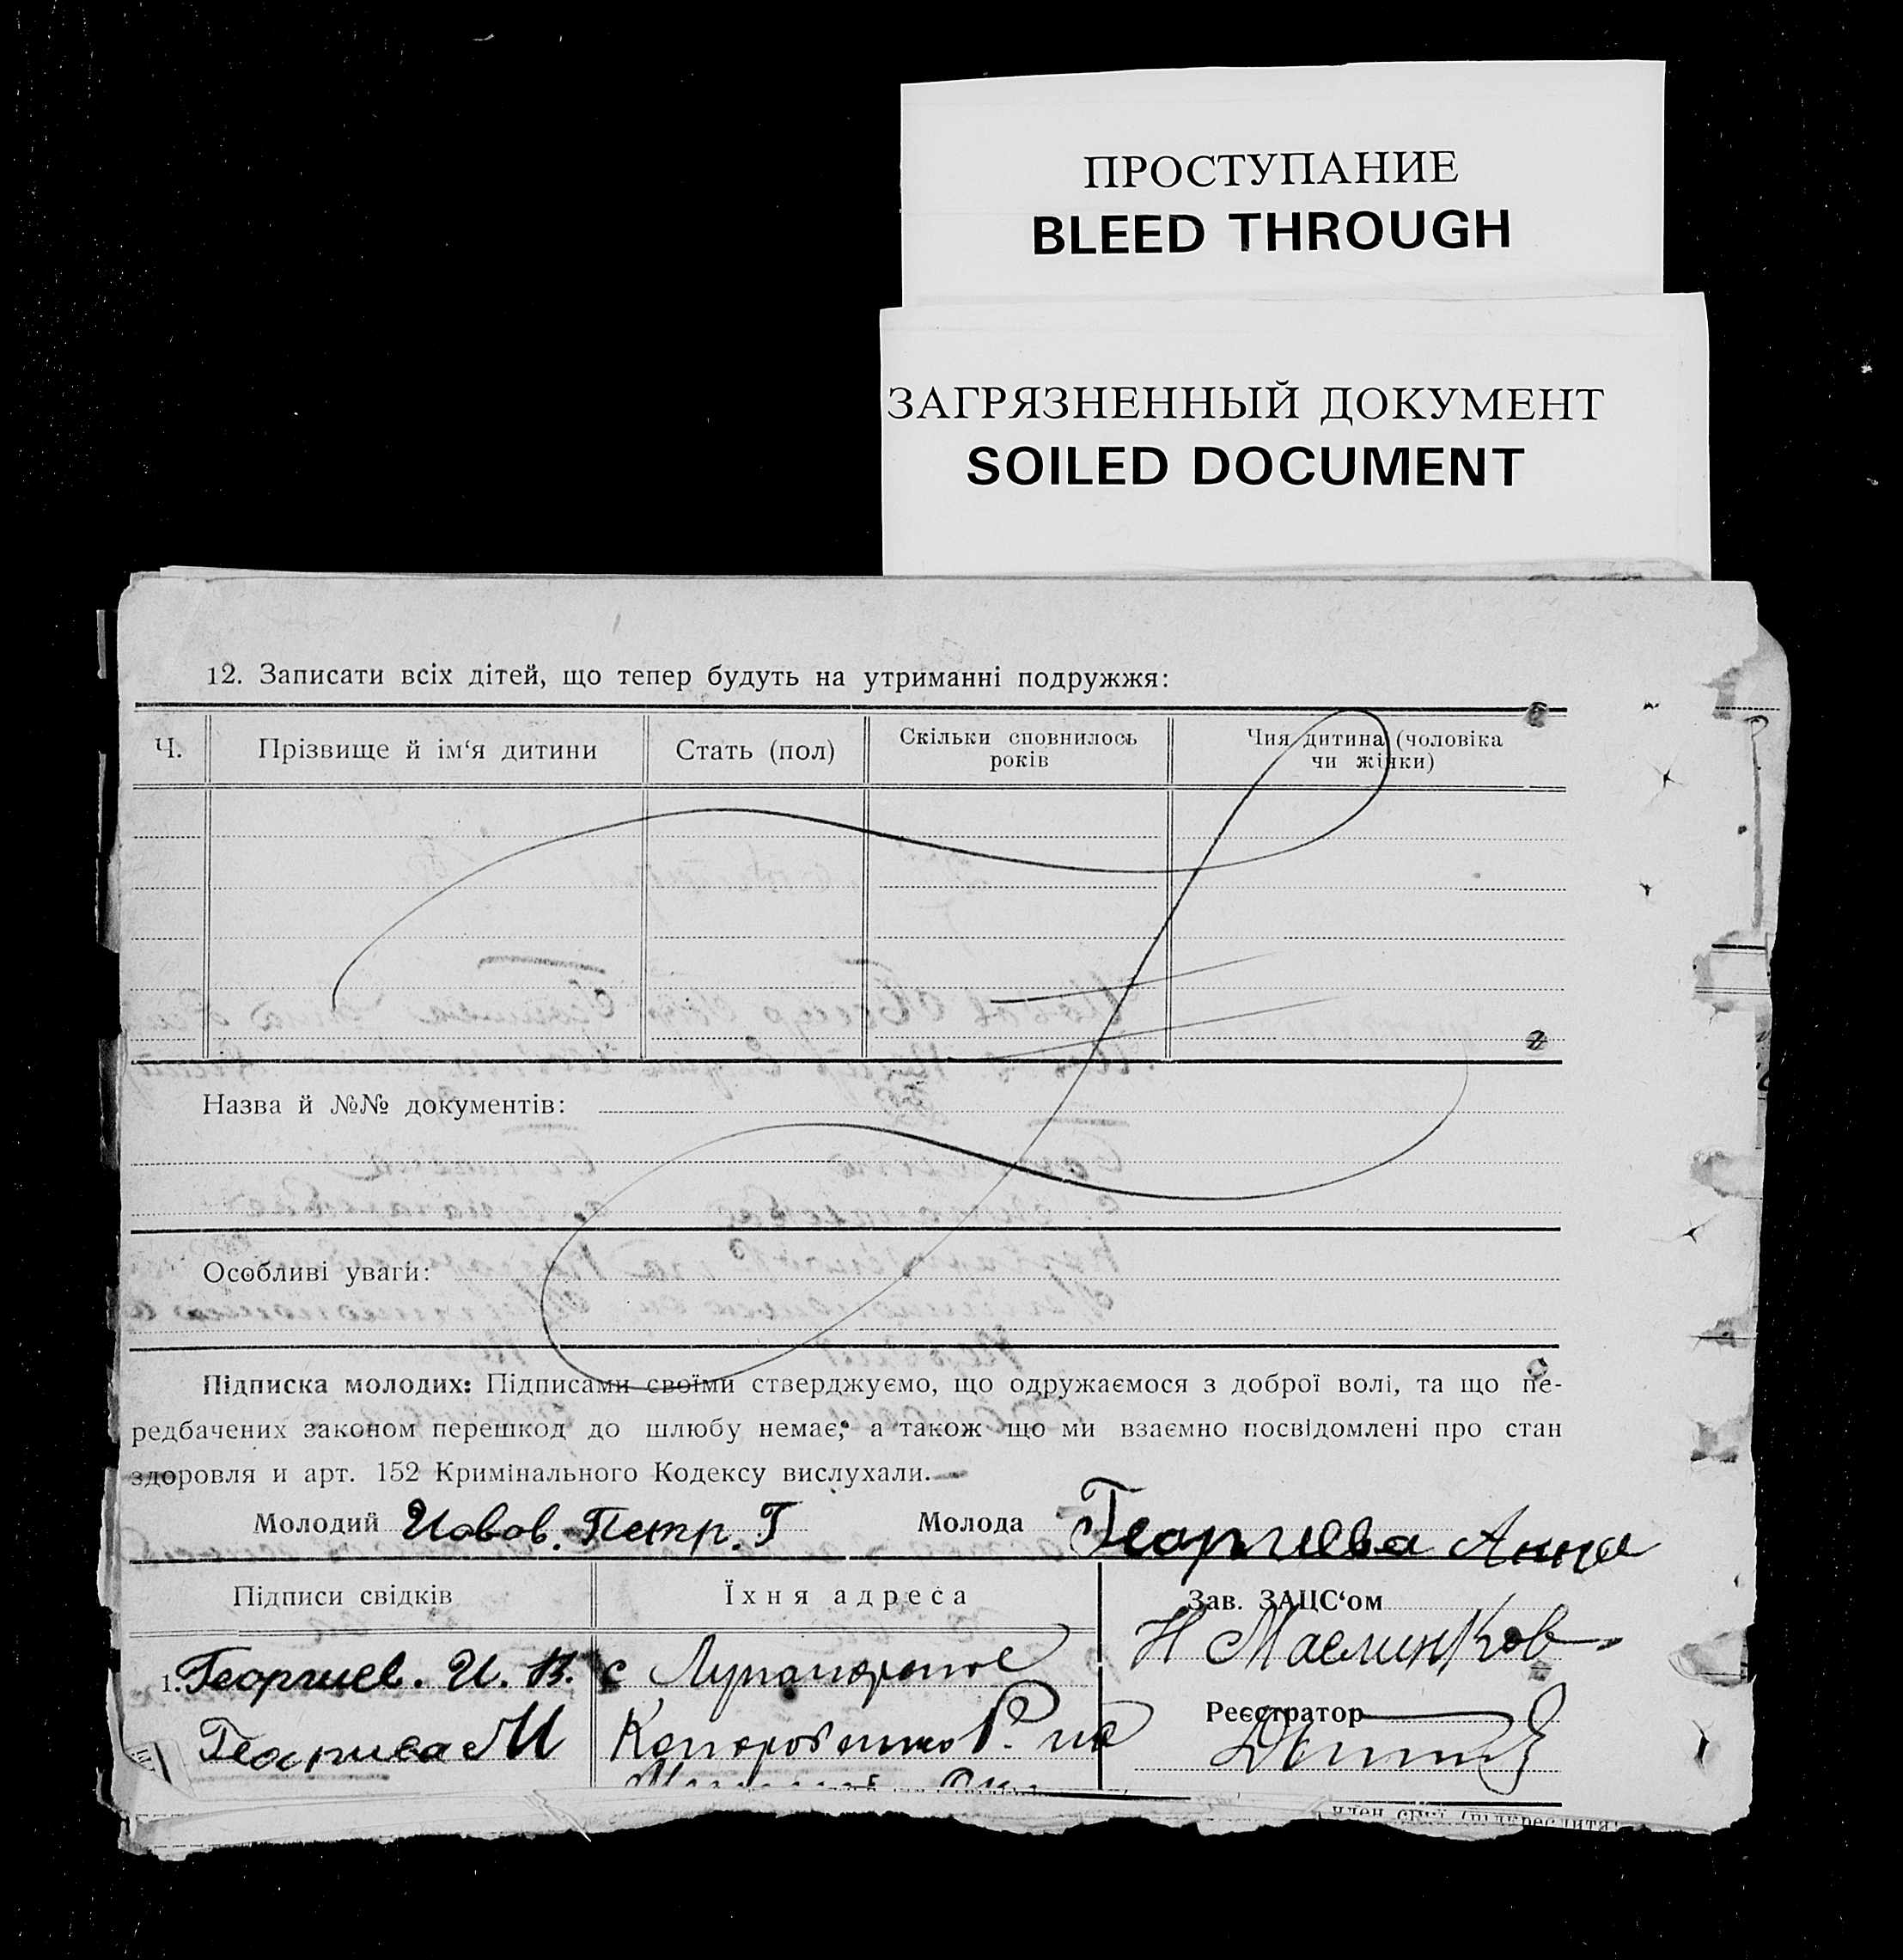 ПРОСТУПАНИЕ
BLEED THROUGH
ЗАГРЯЗНЕННЫЙ ДОКУМЕНТ
SOILED DOCUMENT
12. Записати всіх дітей, що тепер будуть на утриманні подружжя:
Ч.
Прізвище й ім‘я дитини
Стать (пол)
Скільки сповнилось
років
Чия дитина (чоловіка
чи жінки)
Назва й №№ документів:
Особливі уваги:
Підписка молодих: Підписами своїми стверджуємо, що одружаємося з доброї волі, та що пе-
редбачених законом перешкод до шлюбу немає, а також що ми взаємно посвідомлені про стан
здоровля и арт. 152 Кримінального Кодексу вислухали.
Молодий Иовов. Петр. Г Молода Георгиева Анна
Підписи свідків
Їхня адреса
Зав. ЗАЦС‘ом
Н Маслинков
1. Георгиев. И. В.
с
Реєстратор
М